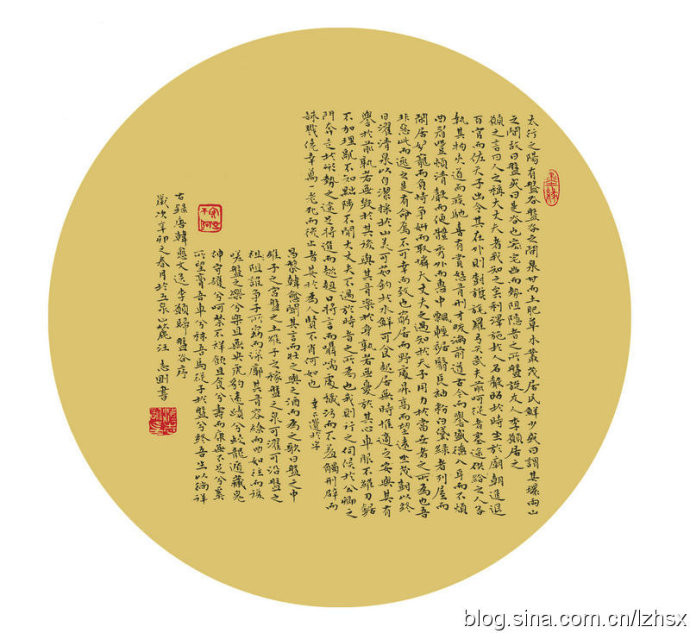 太行之陽有盤谷盤谷之間泉甘而土肥草木叢茂居民鮮少或曰謂其環兩山
之間故曰盤或曰是谷也宅幽而勢阻隱者之所盤旋友人李願居之
願之言曰人之稱大丈夫者我知之矣利澤施於人名聲昭於時坐於廟朝進退
百官而佐天子出令其在外則樹旗旄羅弓矢武夫前呵從者塞途供給之人各
執其物夾道而疾馳喜有賞怒有刑才畯滿前道古今而譽盛德入耳而不煩
曲眉豐頰清聲而便體秀外而惠中飄輕裾翳長袖粉白黛綠者列屋而
閒居妒寵而負恃爭妍而取憐大丈夫之遇知於天子用力於當世者之所為也吾
非惡此而逃之是有命焉不可幸而致也窮居而野處升高而望遠坐茂樹以終
日濯清泉以自潔採於山美可茹釣於水鮮可食起居無時惟適之安與其有
譽於前孰若無毀於其後與其有樂於身孰若無憂於其心車服不維刀鋸
不加理亂不知黜陟不聞大丈夫不遇於時者之所為也我則行之伺候於公卿之
門奔走於形勢之途足將進而趑趄口將言而囁嚅處穢污而不羞觸刑辟而
誅戮僥幸萬一老死而後止者其於為人賢不肖何如也
昌黎韓愈聞其言而壯之與之酒而為之歌曰盤之中
維子之宮盤之土維子之稼盤之泉可濯可沿盤之
阻誰爭子所窈而深廓其有容繚而曲如往而復
嗟盤之樂兮樂且無央虎豹遠跡兮蛟龍遁藏鬼
神守護兮呵禁不祥飲且食兮壽而康無不足兮奚
所望膏吾車兮秣吾馬從子於盤兮終吾生以徜徉
右錄唐韓愈文送李願歸盤谷序
歲次辛卯之春月於五泉山麓汪志剛書
墨緣
blog.sina.com.cn/lzhsx